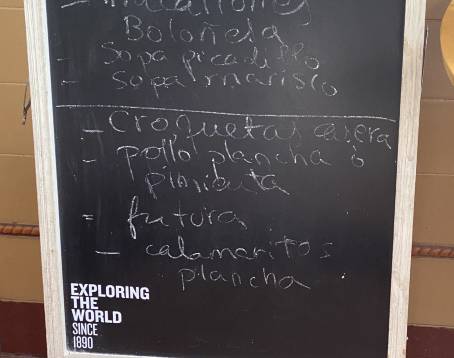 - Macarrones
Boloñesa
- sopa picadillo
- sopa marisco
- croquetas casera
- pollo plancha ó
pimienta
- fritura
- calamaritos
plancha
EXPLORING
THE
WORLD
SINCE
1890